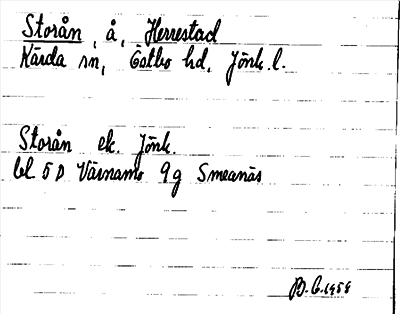 Storån, å, Herrestad
Kärda sn, Östbo hd, Jönk. l.
Storån ek. Jönk.
bl. 5 D Värnamo 9 g Smeanäs
B. G. 1959